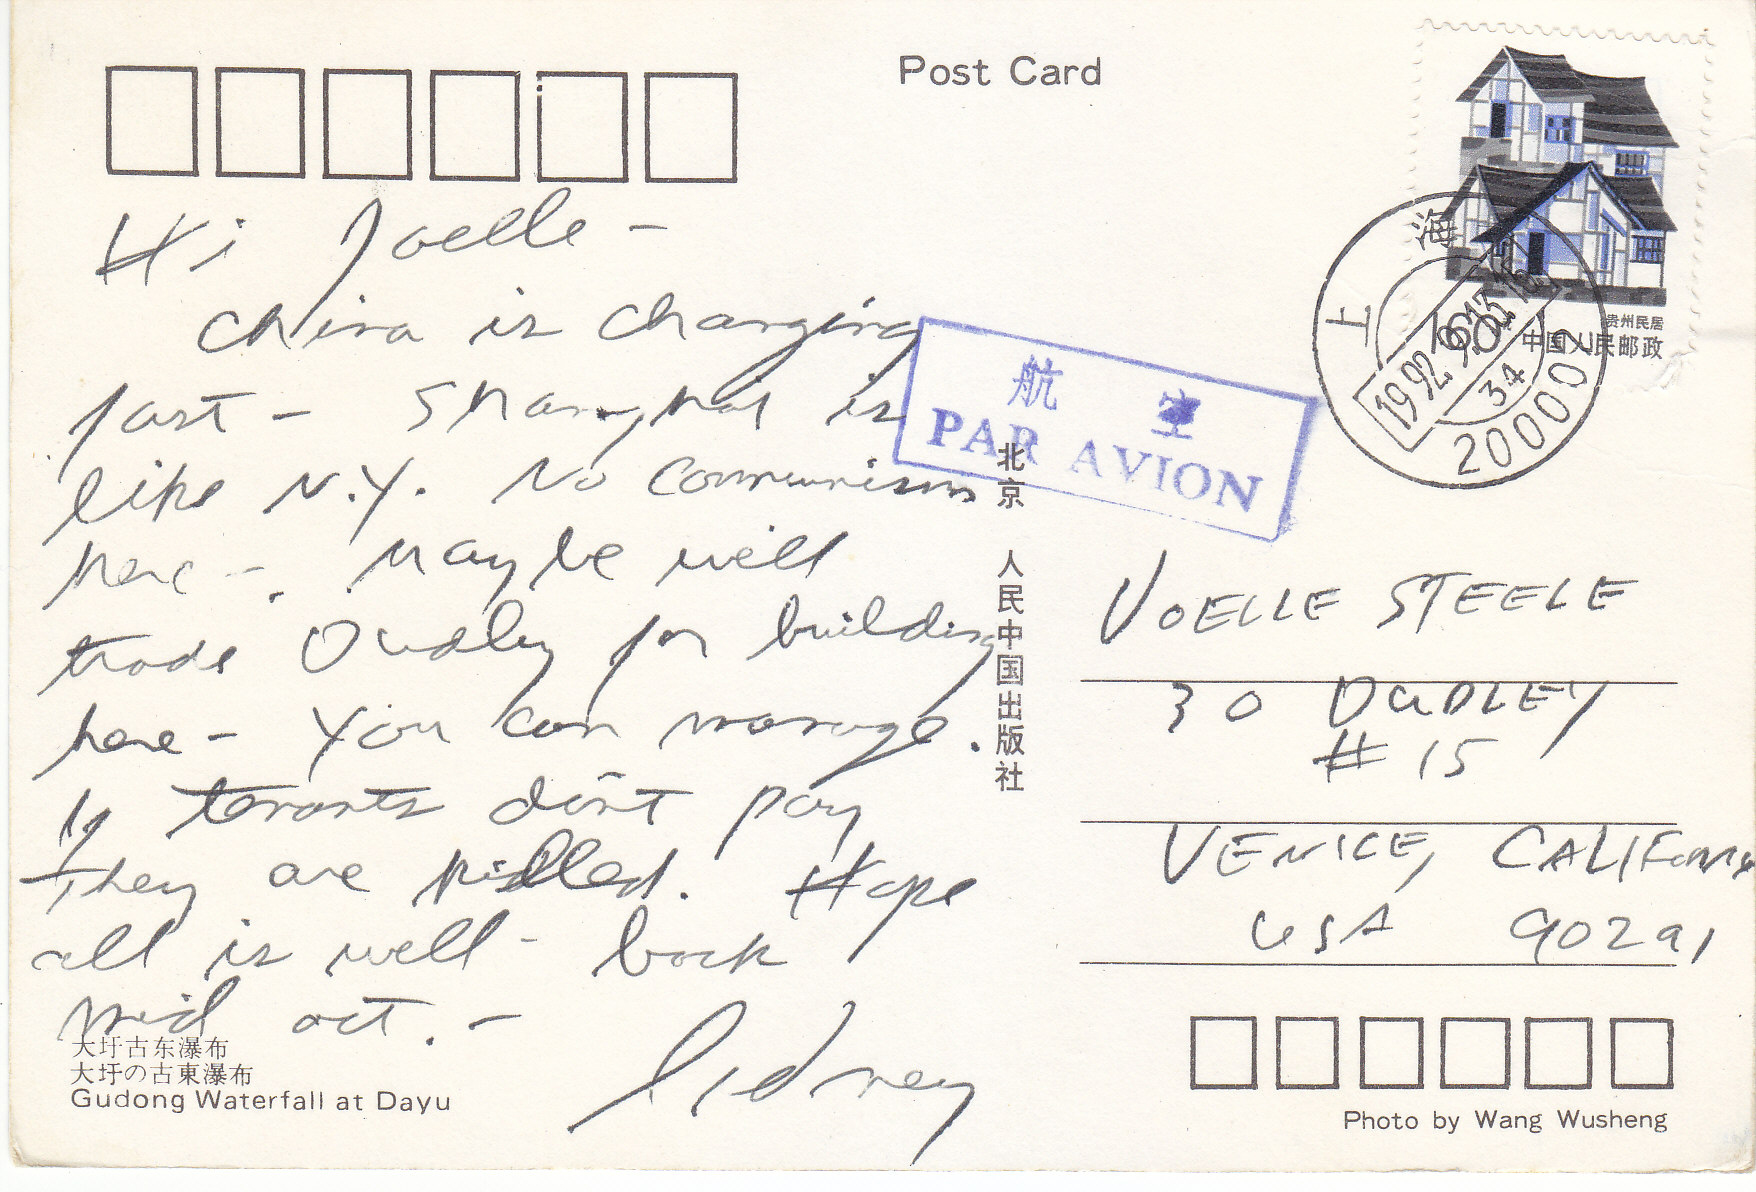 Post Card
Hi Joelle -
China is changing
fast - Shanghai is
like N.Y. No Communism
here -. Maybe will
trade Dudley for building
here - You can manage.
If tenants don't pay
They are killed. Hope
all is well - back
mid oct. -
Sidney
大圩古东瀑布
大圩の古東瀑布
Gudong Waterfall at Dayu
航空
PAR AVION
北京 人民中国出版社
贵州民居
中国人民邮政
上海
1992.9.13.16
34
200002
JOELLE STEELE
30 DUDLEY
# 15
VENICE, CALIFORNIA
USA 90291
Photo by Wang Wusheng